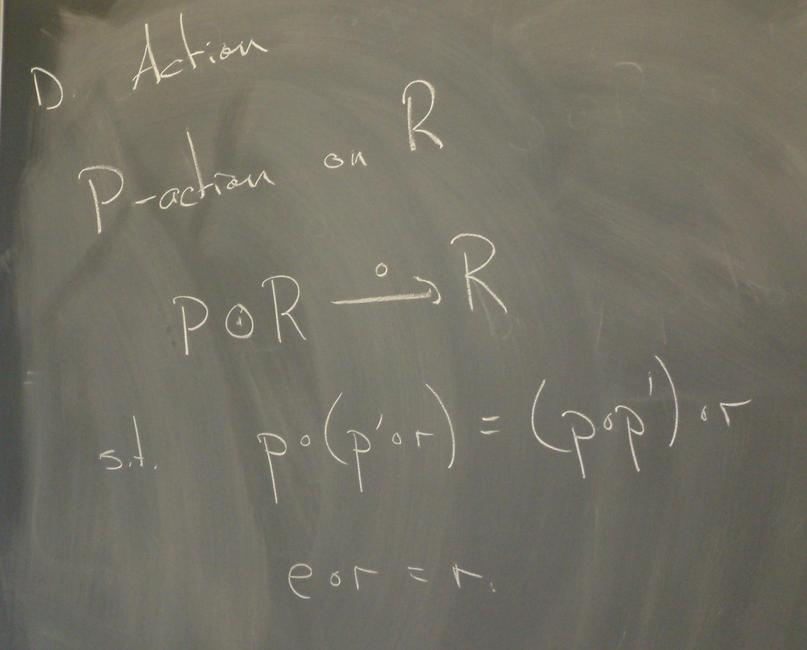 D. Action
P-action on R
P⊙R —∘→ R
s.t. p∘(p'∘r) = (p∘p')∘r
e∘r = r.